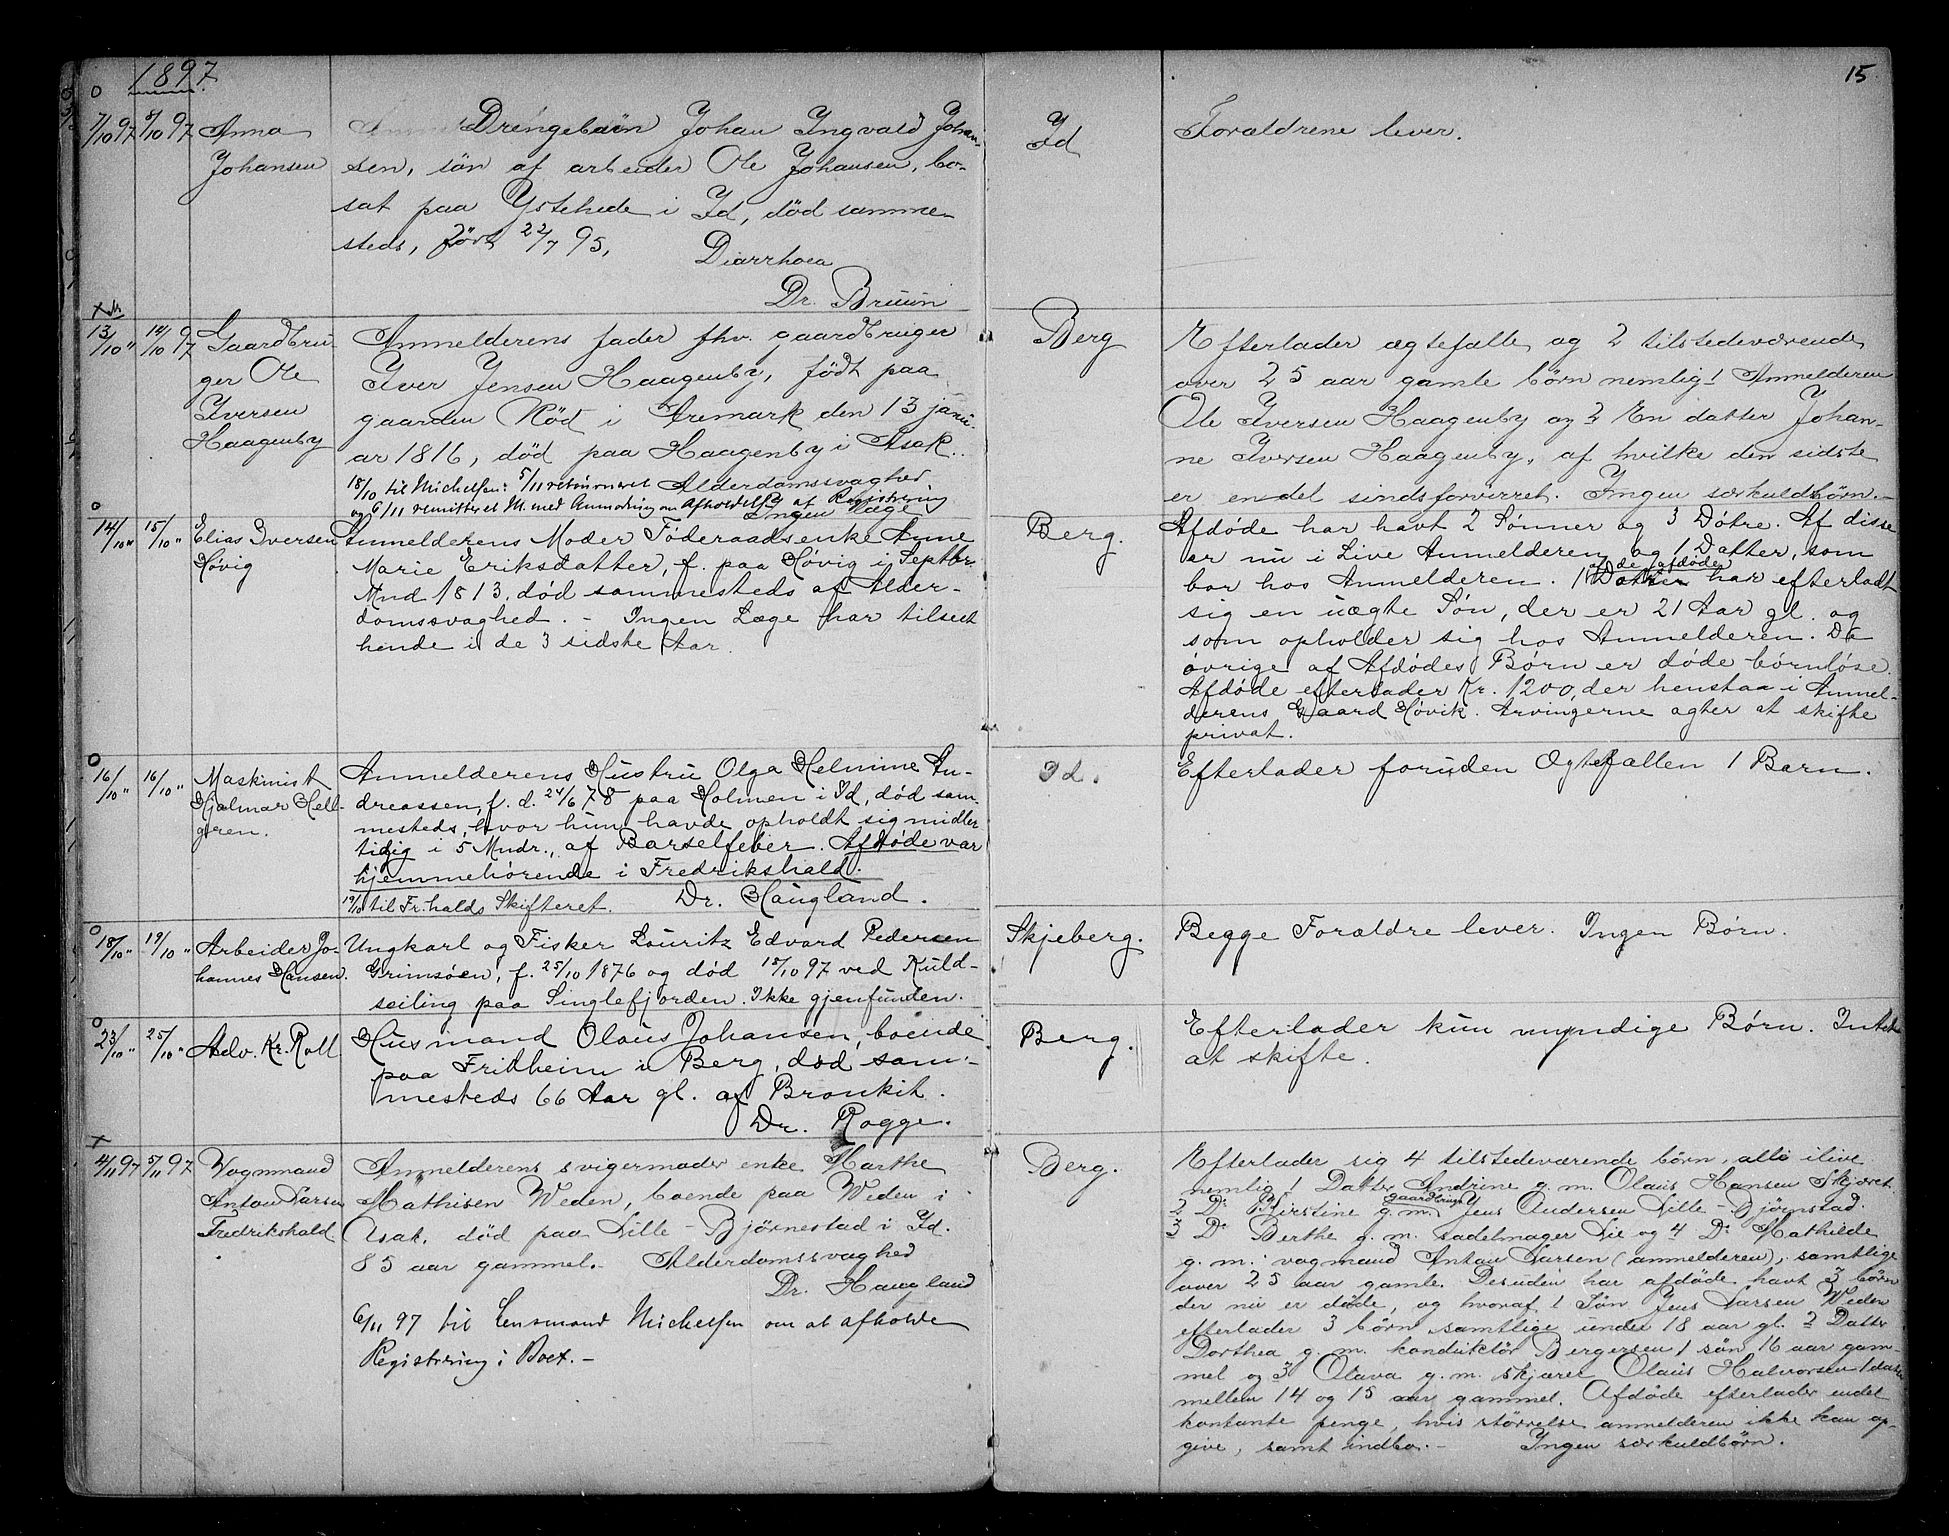 1897.
15
7/10 97 8/10 97 Anna Johansen
Drengebarn Johan Ingvald Johan-
sen, sön af arbeider Ole Johansen, bo-
sat paa Ystehede i Id, död samme-
steds, født 22/7 95,
Diarrhoea
Dr. Bruun
Id
Forældrene lever.
13/10 " 14/10 97 Gaardbru-
ger Ole
Iversen
Haagenby
Anmelderens fader fhv. gaardbruger
Iver Jensen Haagenby, født paa
gaarden Nöd i Aremark den 13 janu-
ar 1816, död paa Haagenby i Asak.
18/10 til Michelsen: 5/11 returneret Alderdomssvaghed.
og 6/11 remitteret M. med Anmodning om Afholdelse af Registrering
Ingen læge
Berg
Efterlader ægtefælle og 2 tilstedeværende
over 25 aar gamle børn nemlig 1 Anmelderen
Ole Iversen Haagenby og 2 En datter Johan-
ne Iversen Haagenby, af hvilke den sidste
er endel sindsforvirret. Ingen særkuldbörn.-
14/10 " 15/10 " Elias Iversen
Høvig
Anmelderens Moder Föderaadsenke Anne
Marie Eriksdatter, f. paa Høvig i Septbr.
Mnd 1813, død sammesteds af Alder-
domssvaghed. - Ingen Læge har tilseet
hende i de 3 sidste Aar.
Berg.
Afdøde har havt 2 Sønner og 3 Døtre. Af disse
er nu i Live Anmelderen og 1 Datter, som
bor hos Anmelderen. 1 af de afdøde har efterladt
sig en uægte Søn, der er 21 Aar gl. og
som opholder sig hos Anmelderen. De
øvrige af Afdødes Børn er døde børnløse.
Afdøde efterlader Kr. 1200, der henstaa i Anmel-
derens Gaard Høvik. Arvingerne agter at skifte
privat.
16/10 " 16/10 " Maskinist
Hjalmar Hell-
gren.
Anmelderens Hustru Olga Helmine An-
dreassen, f. d. 24/6 78 paa Holmen i Id, död sam-
mesteds, hvor hun havde opholdt sig midler
tidig i 5 Mndr., af Barselfeber. Afdøde var
hjemmehörende i Fredrikshald.
19/10 til Fr.halds Skifteret. Dr. Haugland.
Id.
Efterlader foruden Ægtefællen 1 Barn.
18/10 " 19/10 " Arbeider Jo-
hannes Hansen.
Ungkarl og Fisker Louritz Edvard Pedersen
Grimsöen, f. 25/10 1876 og död 15/10 97 ved Kuld-
seiling paa Singlefjorden. Ikke gjenfunden.
Skjeberg.
Begge Forældre lever. Ingen Børn.
23/10 " 25/10 " Adv. Kr. Roll
Husmand Olaus Johansen, boende
paa Fridheim i Berg, död sam-
mesteds 66 Aar gl. af Bronkit.
Dr. Rogge.
Berg.
Efterlader kun myndige Børn. Intet
at skifte.
4/11 97 5/11 97 Vognmand
Anton Larsen
Fredrikshald.
Anmelderens svigermoder enke Marthe
Mathisen Weden, boende paa Weden i
Asak, död paa Lille-Bjørnestad i Id.
85 aar gammel. Alderdomssvaghed
Dr. Haugland
6/11 97 til Lensmand Michelsen om at afholde
Registrering i Boet.-
Berg.
Efterlader sig 4 tilstedeværende börn, alle ilive
nemlig 1 Datter Andrine g. m. Olaus Hansen Skjæret
2 Do Kirstine g. m. gaardbruger Jens Andersen Lille-Bjørnstad.
3 Do Berthe g. m. sadelmager Lie og 4 Do Mathilde
g. m. vogmand Anton Larsen (anmelderen), samtlige
over 25 aar gamle. Desuden har afdøde havt 3 børn
der nu er døde, og hvoraf 1 Søn Jens Larsen Weden
efterlader 3 børn samtlige under 18 aar gl. 2 Datter
Dorthea g. m. konduktør Bergersen 1 søn 16 aar gam-
mel og 3 Olava g. m. skjærer Olaus Halvorsen 1 datter
mellem 14 og 15 aar gammel. Afdøde efterlader endel
kontante penge, hvis størrelse anmelderen ikke kan op-
give, samt indbo.- Ingen særkuldbörn.